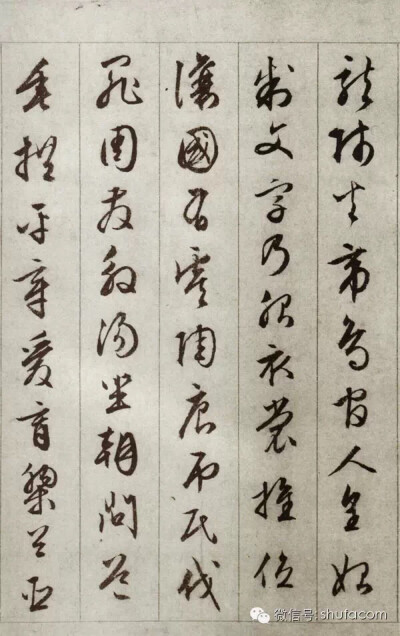 龍師火帝鳥官人皇始
制文字乃服衣裳推位
讓國有虞陶唐吊民伐
罪周發殷湯坐朝問道
垂拱平章愛育黎首臣
微信号: shufacom